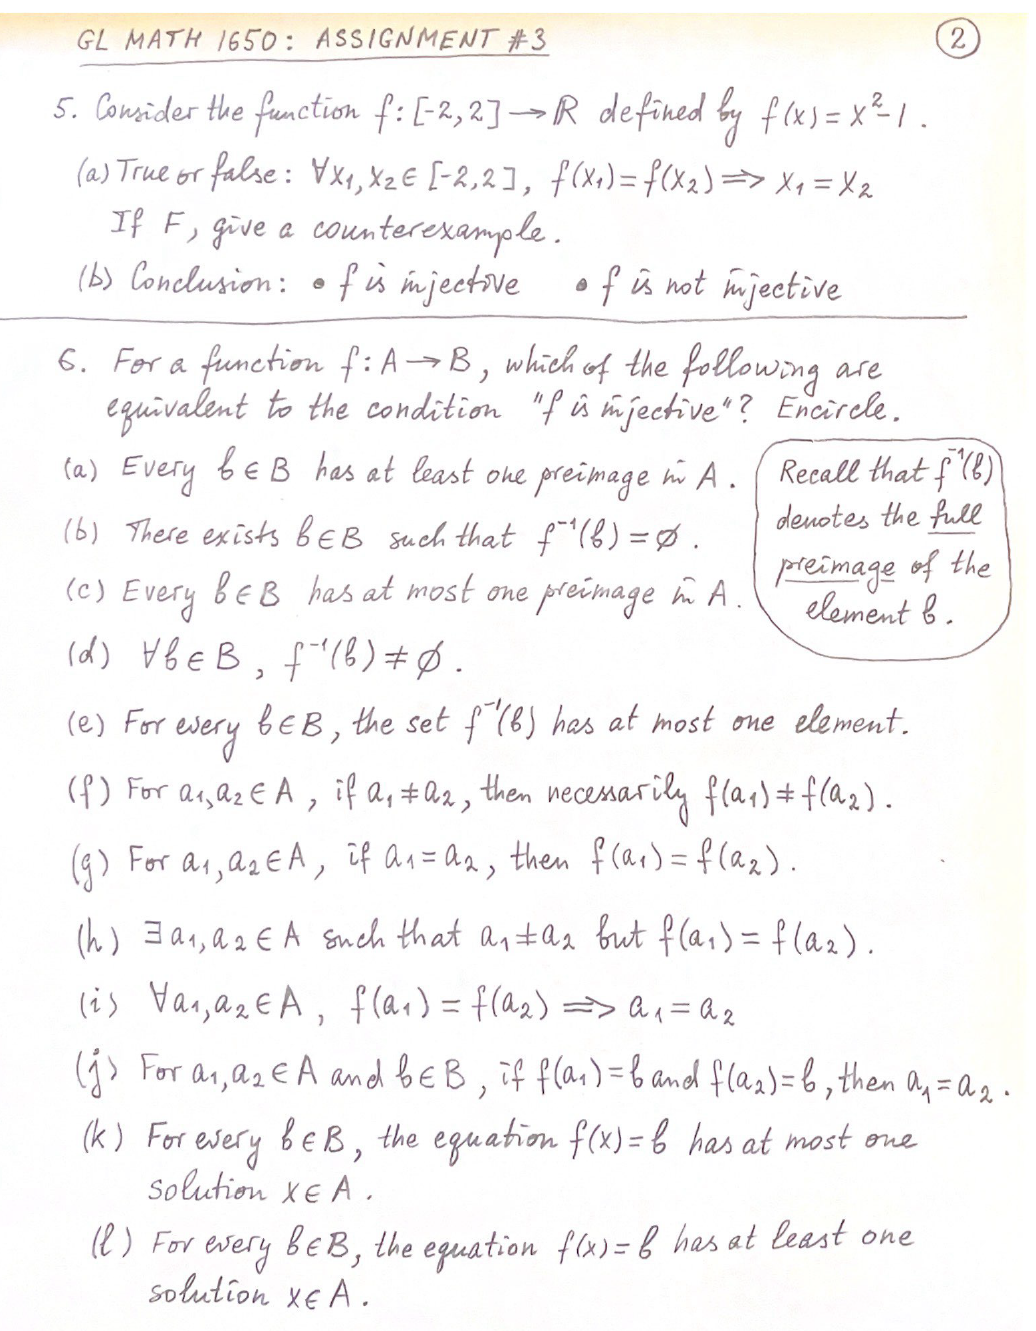 GL MATH 1650: ASSIGNMENT #3
2
5. Consider the function f: [-2,2] → ℝ defined by f(x) = x²-1.
(a) True or false: ∀x₁, x₂ ∈ [-2,2], f(x₁) = f(x₂) ⟹ x₁ = x₂
If F, give a counterexample.
(b) Conclusion: • f is injective • f is not injective
6. For a function f: A → B, which of the following are
equivalent to the condition "f is injective"? Encircle.
(a) Every b ∈ B has at least one preimage in A.
(b) There exists b ∈ B such that f⁻¹(b) = ∅.
(c) Every b ∈ B has at most one preimage in A.
Recall that f⁻¹(b)
denotes the full
preimage of the
element b.
(d) ∀b ∈ B, f⁻¹(b) ≠ ∅.
(e) For every b ∈ B, the set f⁻¹(b) has at most one element.
(f) For a₁, a₂ ∈ A, if a₁ ≠ a₂, then necessarily f(a₁) ≠ f(a₂).
(g) For a₁, a₂ ∈ A, if a₁ = a₂, then f(a₁) = f(a₂).
(h) ∃a₁, a₂ ∈ A such that a₁ ≠ a₂ but f(a₁) = f(a₂).
(i) ∀a₁, a₂ ∈ A, f(a₁) = f(a₂) ⟹ a₁ = a₂
(j) For a₁, a₂ ∈ A and b ∈ B, if f(a₁) = b and f(a₂) = b, then a₁ = a₂.
(k) For every b ∈ B, the equation f(x) = b has at most one
solution x ∈ A.
(l) For every b ∈ B, the equation f(x) = b has at least one
solution x ∈ A.